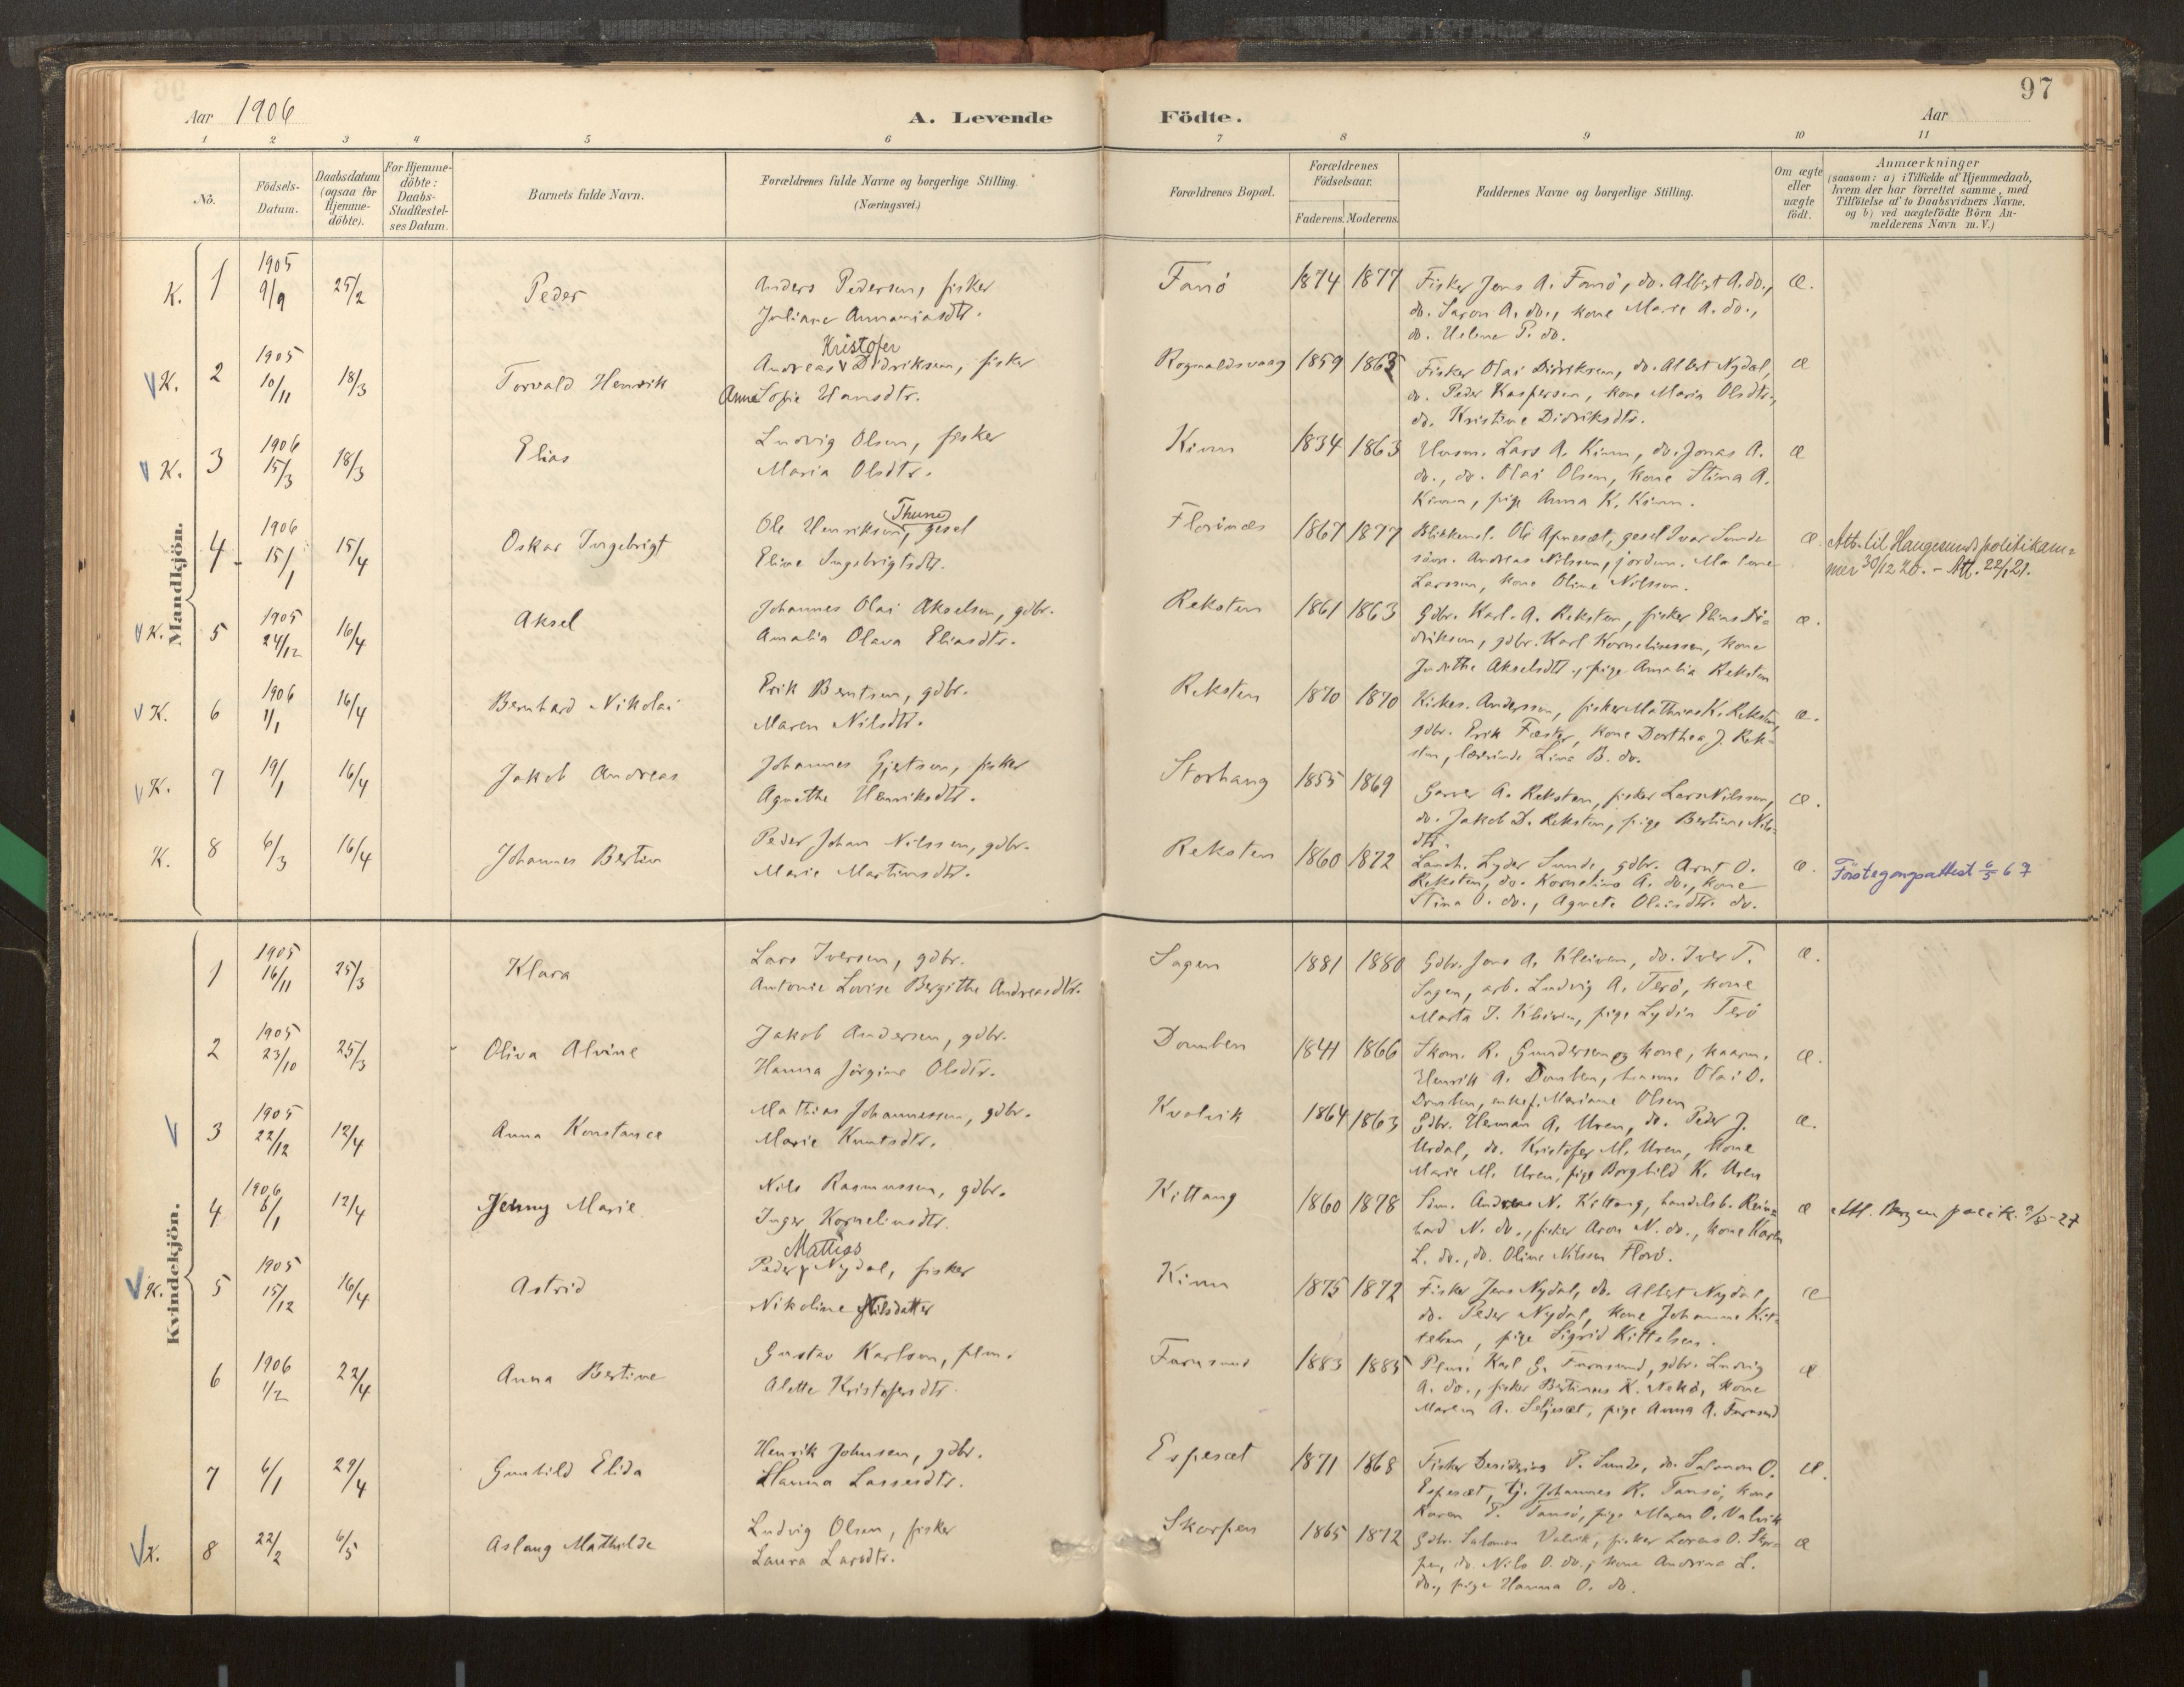 97
Aar 1906
A. Levende Födte.
Aar
1 2 3 4 5 6 7 8 9 10 11
No.
Födsels-Datum.
Daabsdatum (ogsaa for Hjemme-döbte).
For Hjemme-döbte: Daabs-Stadfæstel-ses Datum.
Barnets fulde Navn.
Forældrenes fulde Navne og borgerlige Stilling.
(Næringsvei.)
Forældrenes Bopæl.
Forældrenes Födselsaar.
Faderens. Moderens.
Faddernes Navne og borgerlige Stilling.
Om ægte eller uægte födt.
Anmærkninger
(saasom: a) i Tilfælde af Hjemmedaab,
hvem der har forrettet samme, med
Tilföielse af to Daabsvidners Navne,
og b) ved uægtefödte Börn An-
melderens Navn m. V.)
Mandkjön.
K. 1 1905 9/9 25/2 Peder
Anders Pedersen, fisker
Juliane Annaniasdtr.
Fanö 1874 1877
Fisker Jens A. Fanö, do. Albert A. do.,
do. Saron A. do., kone Marie A. do.,
do. Helene P. do.
æ.
K. 2 1905 10/11 18/3 Torvald Henrik
Kristofer
Andreas Didriksen, fisker
Anne Sofie Hansdtr.
Rognaldsvaag 1859 1865
Fisker Olai Didriksen, do. Albert Nydal,
do. Peder Kaspersen, kone Maria Olsdtr.,
do. Kristine Didriksdtr.
æ
K. 3 1906 15/3 18/3 Elias
Ludvig Olsen, fisker
Maria Olsdtr.
Kinn 1834 1863
Husm. Lars A. Kinn, do. Jonas A.
do., do. Olai Olsen, kone Stina A.
Kinn, pige Anna K. Kinn.
æ
4 1906 15/1 15/4 Oskar Ingebrigt
Thune
Ole Henriksen, gesel
Eline Ingebrigtsdtr.
Florinæs 1867 1877
Blikkensl. Ole Apnesæt, gesel Ivar Sunde
Andreas Nilssen, jordm. Malene
Larssen, kone Oline Nilssen.
æ.
Att. til Haugesunds politikam-
mer 30/12 20. - Att. 22/1 21.
K. 5 1905 24/12 16/4 Aksel
Johannes Olai Akselsen, gdbr.
Amalia Olava Eliasdtr.
Reksten 1861 1863
Gdbr. Karl A. Reksten, fisker Elias Di-
driksen, gdbr. Karl Korneliussen, kone
Judithe Akselsdtr., pige Amalia Reksten
æ.
K. 6 1906 1/1 16/4 Bernhard Nikolai
Erik Berntsen, gdbr.
Maren Nilsdtr.
Reksten 1870 1870
Kirkes. Anderssen, fisker Mathias K. Reksten,
gdbr. Erik Fæster, kone Dorthea J. Rek-
sten, lærerinde Lina B. do.
æ.
K. 7 19/1 16/4 Jakob Andreas
Johannes Gjertsen, fisker
Agnethe Henriksdtr.
Storhaug 1855 1869
A. Reksten, fisker Lars Nilssen,
do. Jakob D. Reksten, pige Bertine Nils-
dtr.
æ.
K. 8 6/3 16/4 Johannes Bertin
Peder Johan Nilssen, gdbr.
Marie Martinusdtr.
Reksten 1860 1872
Landh. Lyder Sunde, gdbr. Arnt O.
Reksten, do. Kornelius A. do., kone
Stina O. do., Agnete Olaisdtr. do.
æ.
Förstegangsattest 6/5 67
Kvindekjön.
1 1905 16/11 25/3 Klara
Lars Iversen, gdbr.
Antonie Lovise Bergithe Andreasdtr.
Sagen 1881 1880
Gdbr. Jens A. Kleiven, do. Iver T.
Sagen, arb. Ludvig A. Terö, kone
Marta J. Kleiven, pige Lydia Terö
æ.
2 1905 23/10 25/3 Oliva Alvine
Jakob Andersen, gdbr.
Hanna Jörgine Olsdtr.
Domben 1841 1866
Skom. R. Gundersen og kone,
Henrik A. Domben, Olai O.
Domben, enkef. Mariane Olsen
æ.
3 1905 22/12 12/4 Anna Konstance
Mathias Johannessen, gdbr.
Marie Knutsdtr.
Kvalvik 1864 1863
Gdbr. Herman A. Uren, do. Peder J.
Urdal, do. Kristofer M. Uren, kone
Marie M. Uren, pige Borghild K. Uren
æ.
4 1906 6/1 12/4 Jenny Marie
Nils Rasmussen, gdbr.
Inger Korneliusdtr.
Kittang 1860 1878
Sdm. Andreas N. Kittang, handelsb. Rein-
hard N. do., fisker Aron N. do., kone Karen
L. do., do. Oline Nilssen Florö.
æ
Att. Bergen 27
K. 5 1905 15/12 16/4 Astrid
Mattias
Peder Nydal, fisker
Nikoline Nilsdatter
Kinn 1875 1872
Fisker Jens Nydal, do. Albert Nydal,
do. Peder Nydal, kone Johanne Kit-
telsen, pige Sigrid Kittelsen.
æ
6 1906 1/2 22/4 Anna Bertine
Gustav Karlsen, plm.
Alette Kristofersdtr.
Farnsund 1883 1885
Plm. Karl G. Furusund, gdbr. Ludvig
A. do., fisker Bertinus K. Nekö, kone
Maren A. Seljesæt, pige Anna A. Furusund
æ
7 6/1 29/4 Gunhild Elida
Henrik Johnsen, gdbr.
Hanna Lassesdtr.
Espesæt 1871 1868
Fisker Desiderius P. Sunde, do. Salamon O.
Espesæt, tj. Johannes K. Tansö, kone
Karen P. Tansö, pige Maren O. Valvik
æ.
K. 8 22/2 6/5 Aslaug Mathilde
Ludvig Olsen, fisker
Laura Larsdtr.
Skorpen 1865 1872
Gdbr. Salomon Valvik, fisker Lorens O. Skor-
pen, do. Nils O. do., kone Andrine L.
do., pige Hanna O. do.
æ